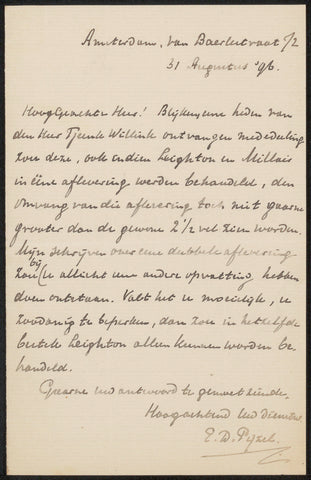 Amsterdam, van Baerlestraat 72
31 Augustus '96.
Hooggeachte Heer! Blijkens eene heden van
den Heer Tjeenk Willink ontvangen mededeeling
zou deze, ook indien Leighton en Millais
in ééne aflevering werden behandeld, den
omvang van die aflevering toch niet gaarne
grooter dan de gewone 2 1/2 vel zien worden.
Mijn schrijven over eene dubbele aflevering
zou bij u allicht eene andere opvatting hebben
doen ontstaan. Valt het u moeielijk, u
zoodanig te beperken, dan zou in hetzelfde
bestek Leighton alleen kunnen worden be-
handeld.
Gaarne uw antwoord te gemoet ziende,
Hoogachtend Uw Dienaar
E. D. Pijzel.